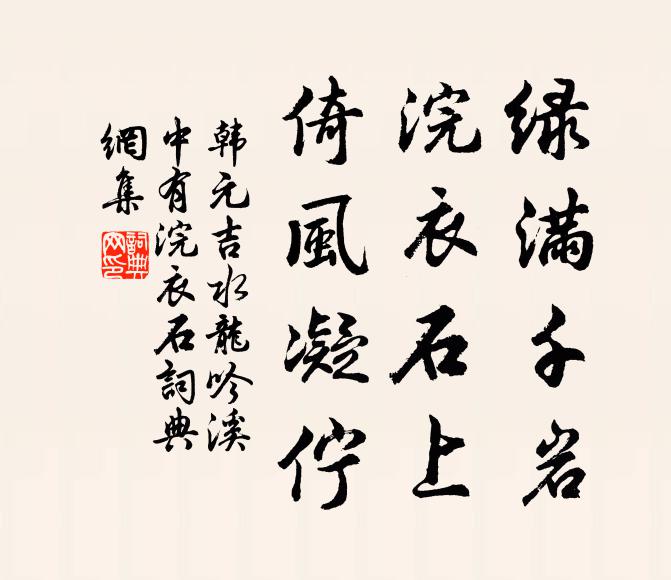 绿满千岩
浣衣石上
倚風凝伫
韩元吉水龍吟溪
中有浣衣石詞典
網集
詞典
网印